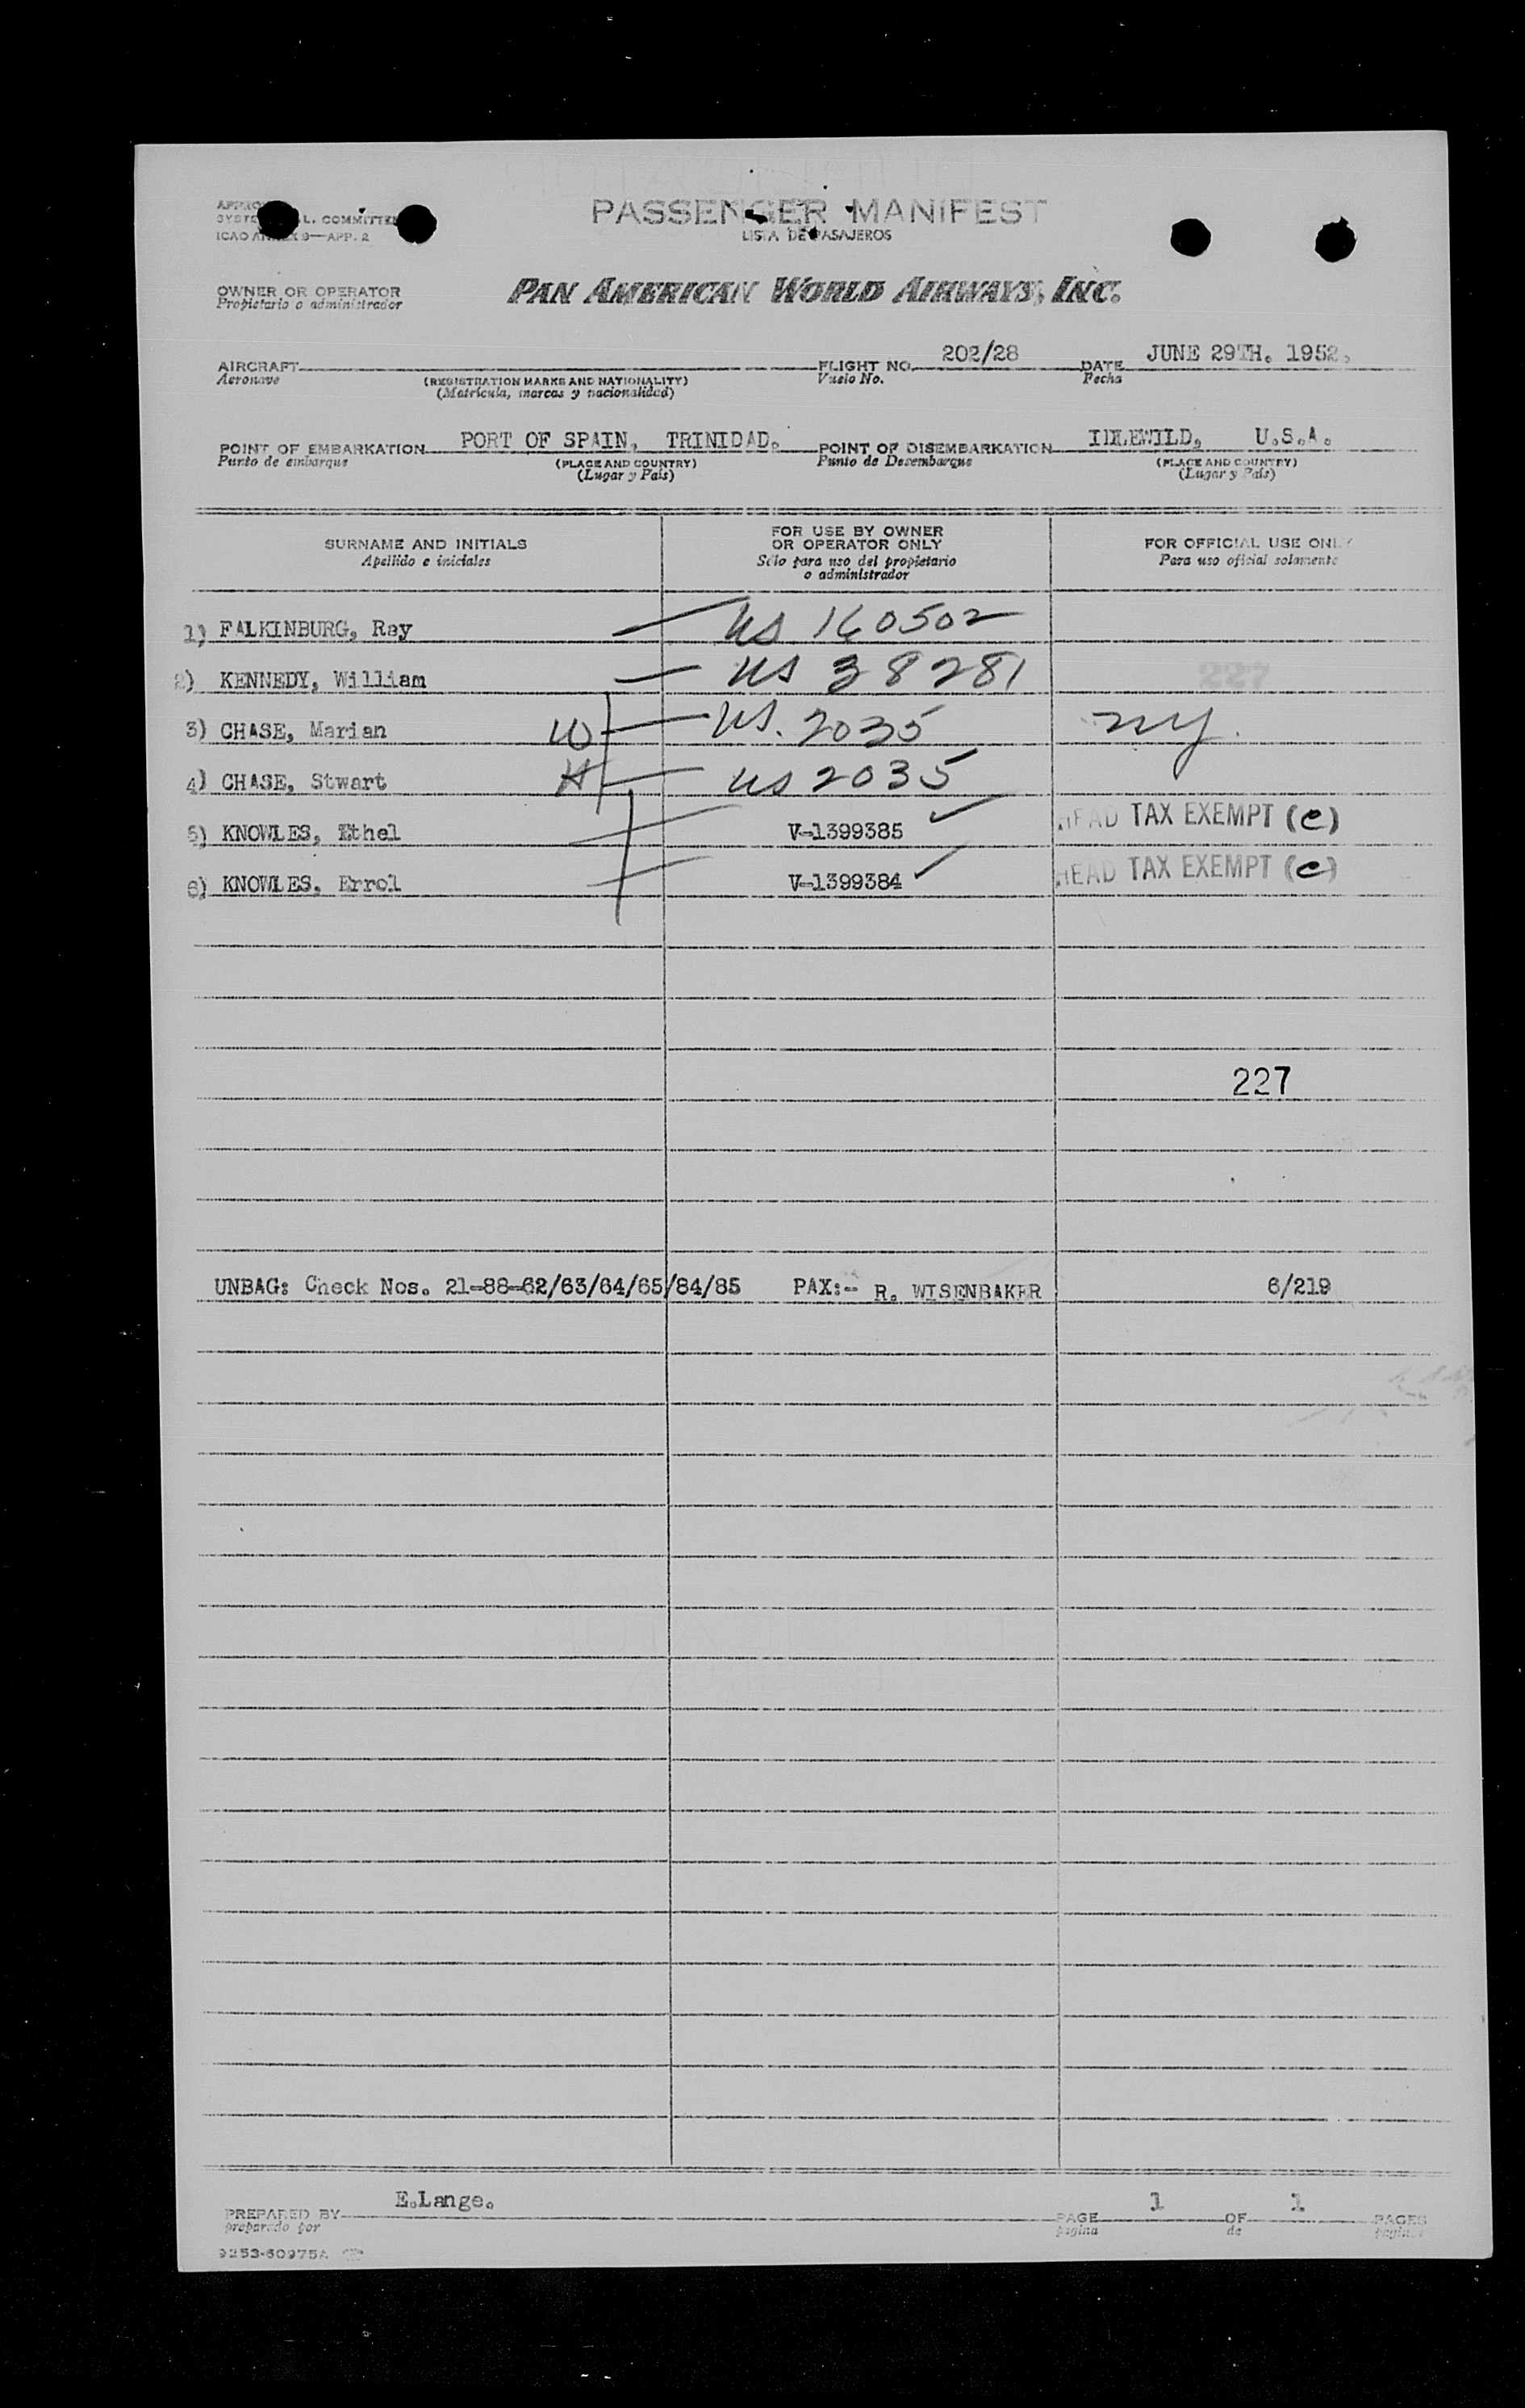 PASSENGER MANIFEST
L. COMMITTEE
LISTA DE PASAJEROS
ICAO ANNEX 9—APP. 2
OWNER OR OPERATOR
Propietario o administrador
PAN AMERICAN WORLD AIRWAYS, INC.
AIRCRAFT FLIGHT NO. 202/28 DATE JUNE 29TH. 1952.
Aeronave (REGISTRATION MARKS AND NATIONALITY) Vuelo No. Fecha
(Matrícula, marcas y nacionalidad)
POINT OF EMBARKATION PORT OF SPAIN, TRINIDAD. POINT OF DISEMBARKATION IDLEWILD, U.S.A.
Punto de embarque (PLACE AND COUNTRY) Punto de Desembarque (PLACE AND COUNTRY)
(Lugar y País) (Lugar y País)
SURNAME AND INITIALS FOR USE BY OWNER OR OPERATOR ONLY FOR OFFICIAL USE ONLY
Apellido e iniciales Sólo para uso del propietario o administrador Para uso oficial solamente
1) FALKINBURG, Ray US 160502
2) KENNEDY, William US 38281 227
3) CHASE, Marian W US. 2035 NY.
4) CHASE, Stwart H US 2035
5) KNOWLES, Ethel V-1399385 HEAD TAX EXEMPT (c)
6) KNOWLES, Errol V-1399384 HEAD TAX EXEMPT (c)
227
UNBAG: Check Nos. 21-88-62/63/64/65/84/85 PAX:- R. WISENBAKER 6/219
PREPARED BY E.Lange. PAGE 1 OF 1 PAGES
preparado por pagina de paginas
9253-60975A